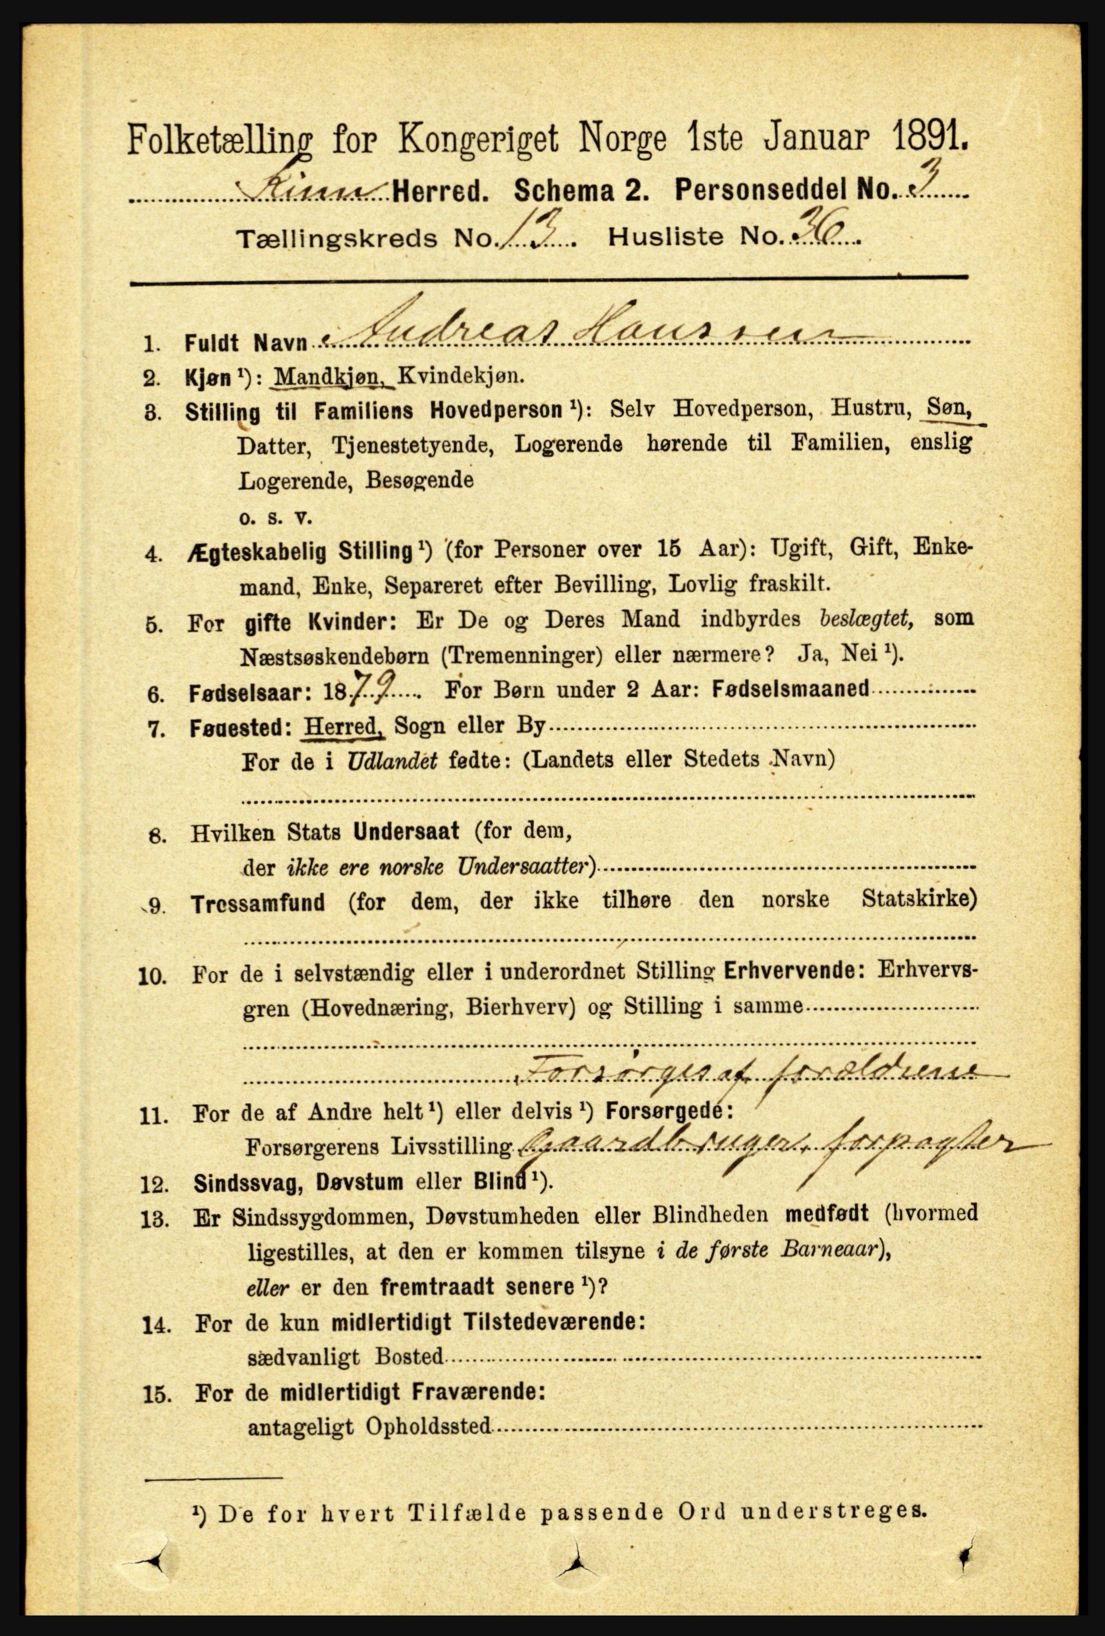 Folketælling for Kongeriget Norge 1ste Januar 1891.
Kinn Herred. Schema 2. Personseddel No. 3
Tællingskreds No. 13. Husliste No. 36.
1. Fuldt Navn Andreas Hanssen
2. Kjøn ¹): Mandkjøn, Kvindekjøn.
3. Stilling til Familiens Hovedperson ¹): Selv Hovedperson, Hustru, Søn,
Datter, Tjenestetyende, Logerende hørende til Familien, enslig
Logerende, Besøgende
o. s. v.
4. Ægteskabelig Stilling ¹) (for Personer over 15 Aar): Ugift, Gift, Enke-
mand, Enke, Separeret efter Bevilling, Lovlig fraskilt.
5. For gifte Kvinder: Er De og Deres Mand indbyrdes beslægtet, som
Næstsøskendebørn (Tremenninger) eller nærmere? Ja, Nei ¹).
6. Fødselsaar: 1879. For Børn under 2 Aar: Fødselsmaaned
7. Føuested: Herred, Sogn eller By
For de i Udlandet fødte: (Landets eller Stedets Navn)
8. Hvilken Stats Undersaat (for dem,
der ikke ere norske Undersaatter)
9. Trossamfund (for dem, der ikke tilhøre den norske Statskirke)
10. For de i selvstændig eller i underordnet Stilling Erhvervende: Erhvervs-
gren (Hovednæring, Bierhverv) og Stilling i samme
Forsørges af forældrene
11. For de af Andre helt ¹) eller delvis ¹) Forsørgede:
Forsørgerens Livsstilling Gaardbruger, forpagter
12. Sindssvag, Døvstum eller Blind ¹).
13. Er Sindssygdommen, Døvstumheden eller Blindheden medfødt (hvormed
ligestilles, at den er kommen tilsyne i de første Barneaar),
eller er den fremtraadt senere ¹)?
14. For de kun midlertidigt Tilstedeværende:
sædvanligt Bosted
15. For de midlertidigt Fraværende:
antageligt Opholdssted
¹) De for hvert Tilfælde passende Ord understreges.